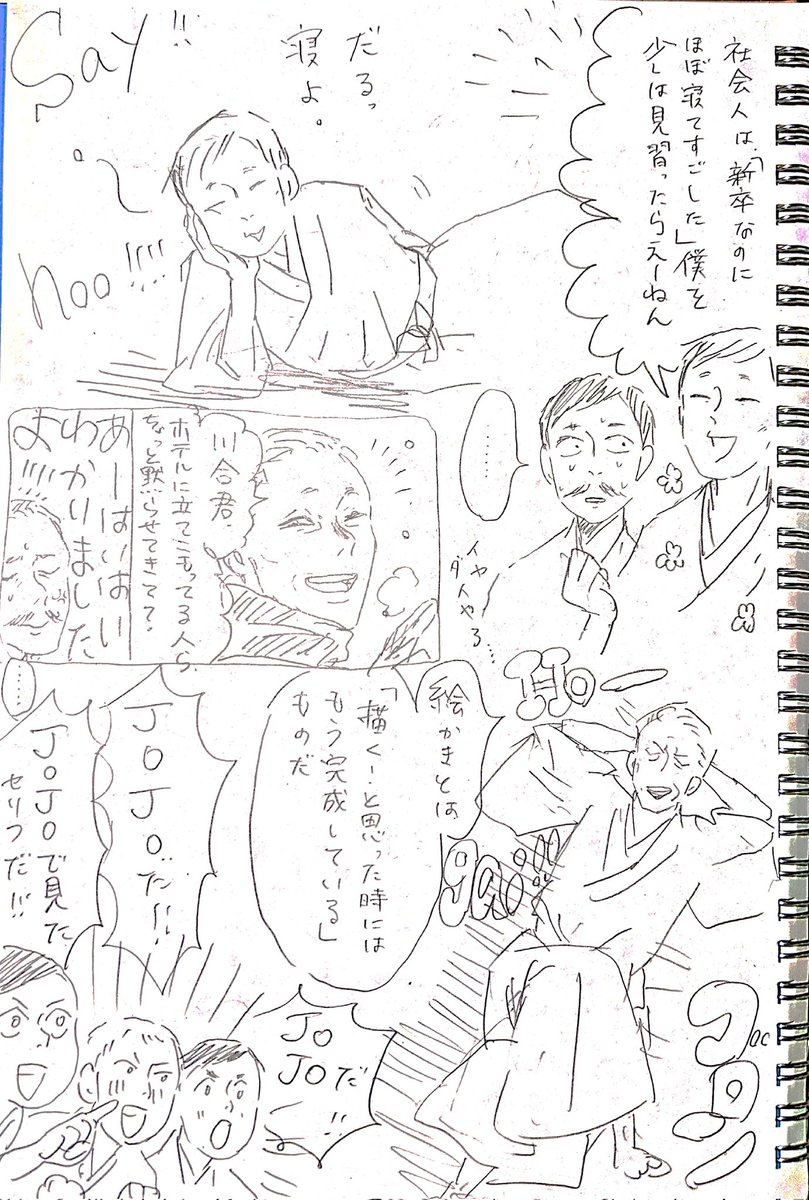 社会人は、「新卒なのに
ほぼ寝てすごした」僕を
少しは見習ったらえーねん
だるっ
寝よ。
Say!!
hoo!!!!
………
イヤ
ダメやろ…
川合君、
ホテルに立てこもってる人ら
ちょっと黙らせてきて？
あーはいはい
わかりました
よ!!!!
……
Ho—
絵かきとは
「描く！と思った時には
もう完成している」
ものだ
gao!!!
JOJOだ!!
JOJOで見た
セリフだ!!
JO
JOだ!!